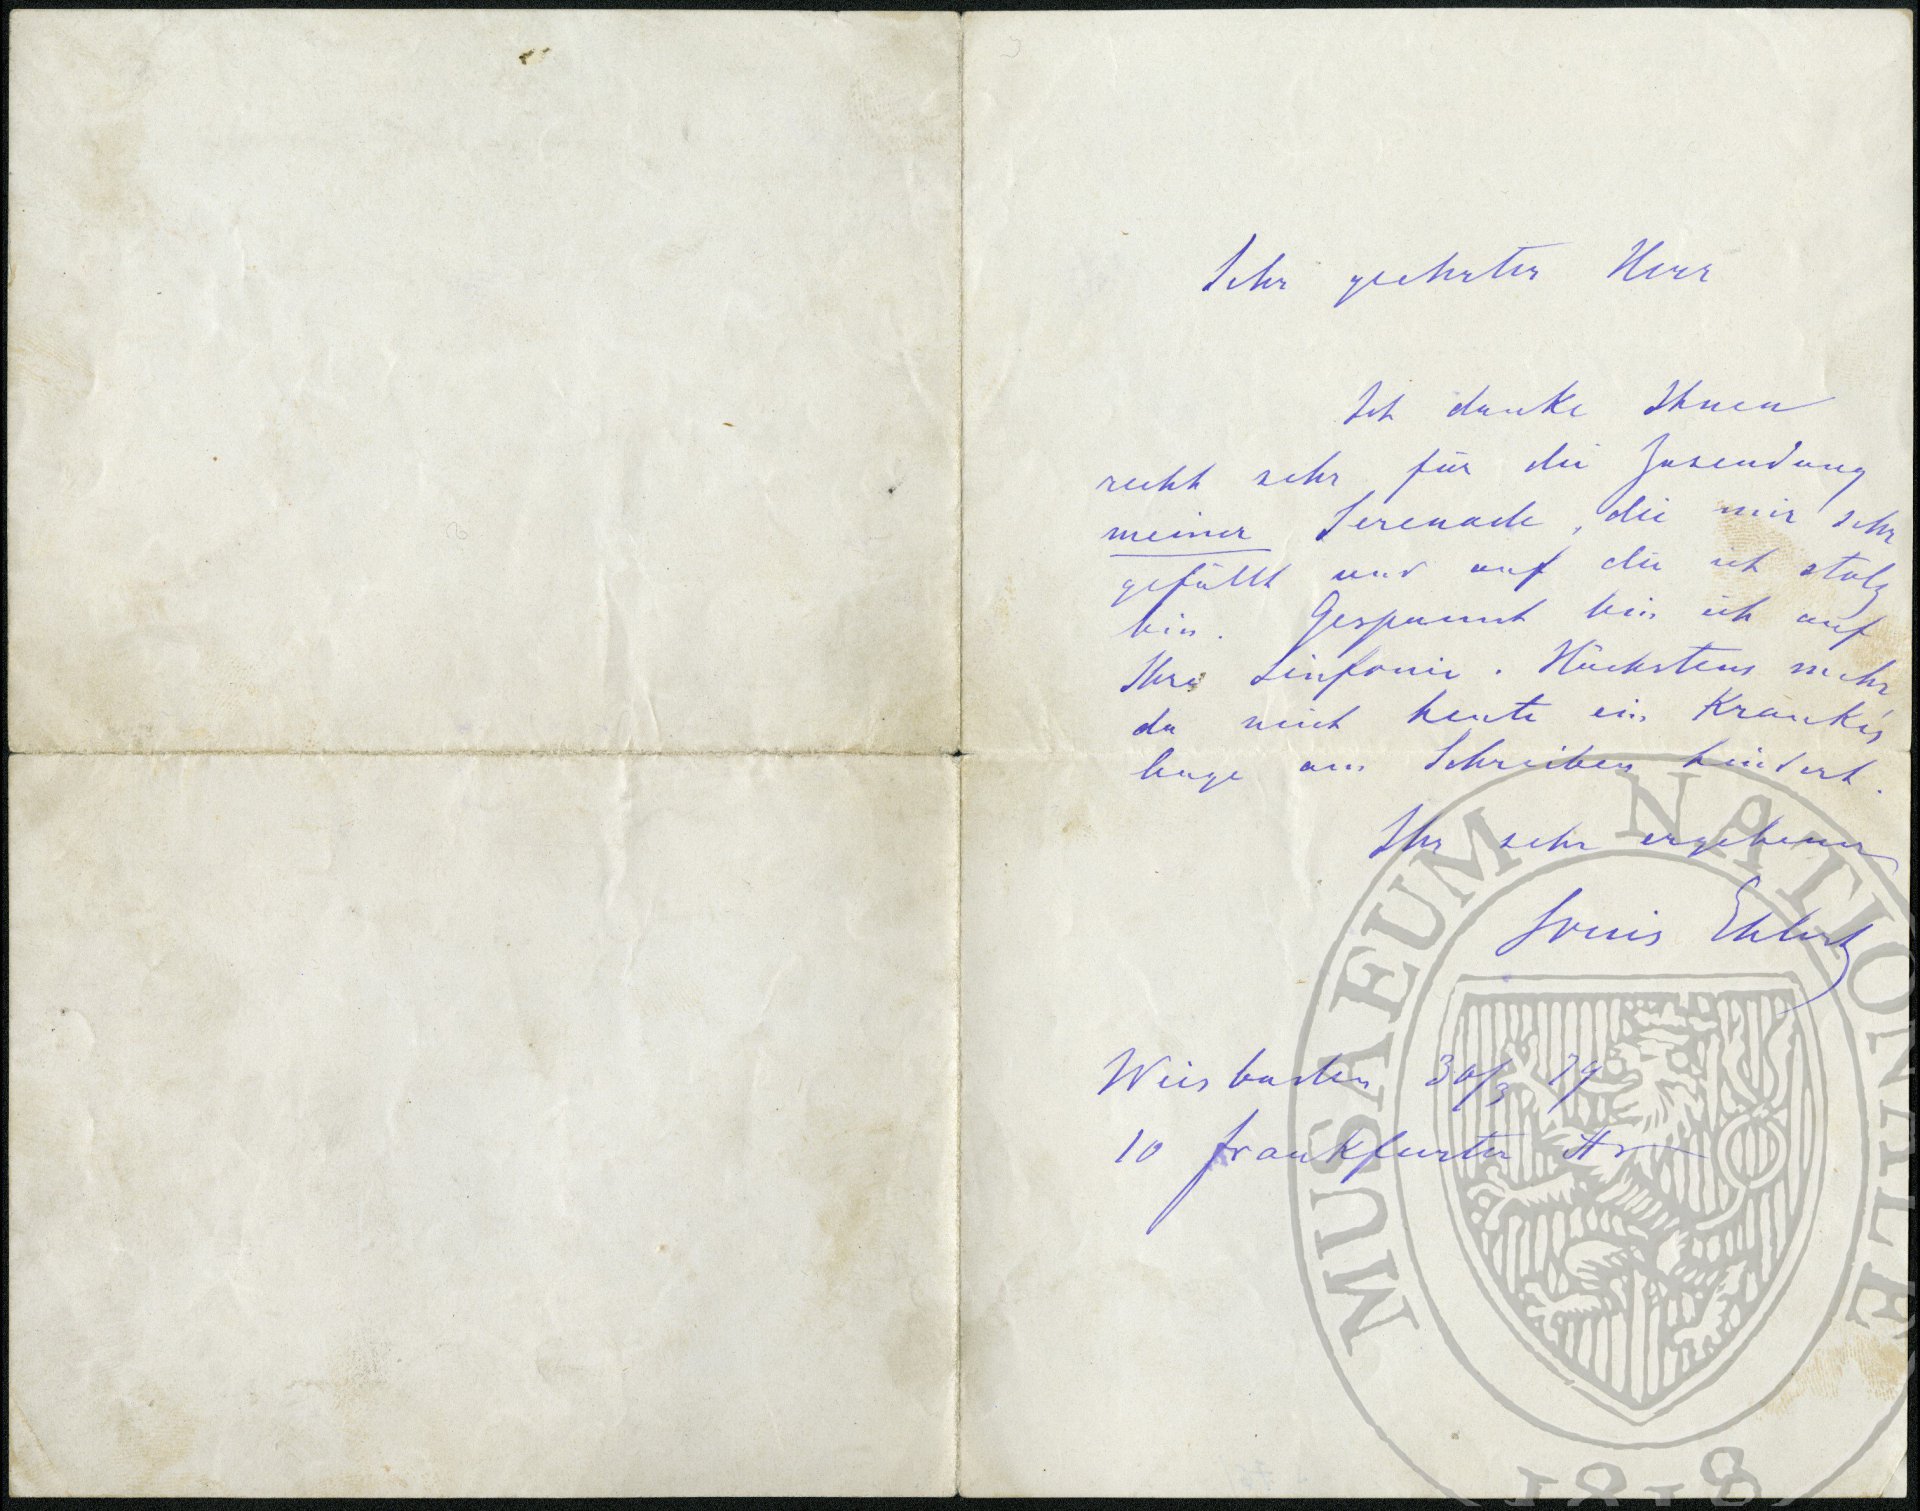 Sehr geehrter Herr
Ich danke Ihnen
recht sehr für die Zusendung
meiner Serenade, die mir sehr
gefällt und auf die ich stolz
bin. Gespannt bin ich auf
Ihre Sinfonie. Nächstens mehr
da mich heute ein krankes
Auge am Schreiben hindert.
Ihr sehr ergebener
Louis Ehlert
Wiesbaden 30/3 79
10 Frankfurter Str
MUSAEUM NATIONALE
1818